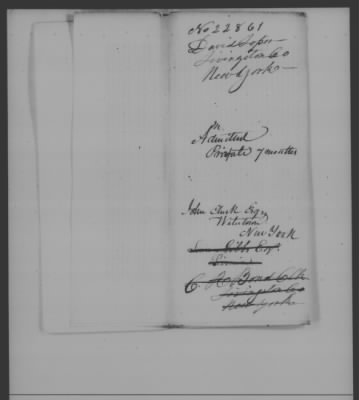 No 22861
David Soper
Livingston Co
New York
in
Admitted
Private 7 months
John Clark Esqr
Watertown
New York
Esqr
C. H. Bond Clk
Livingston Co
New York